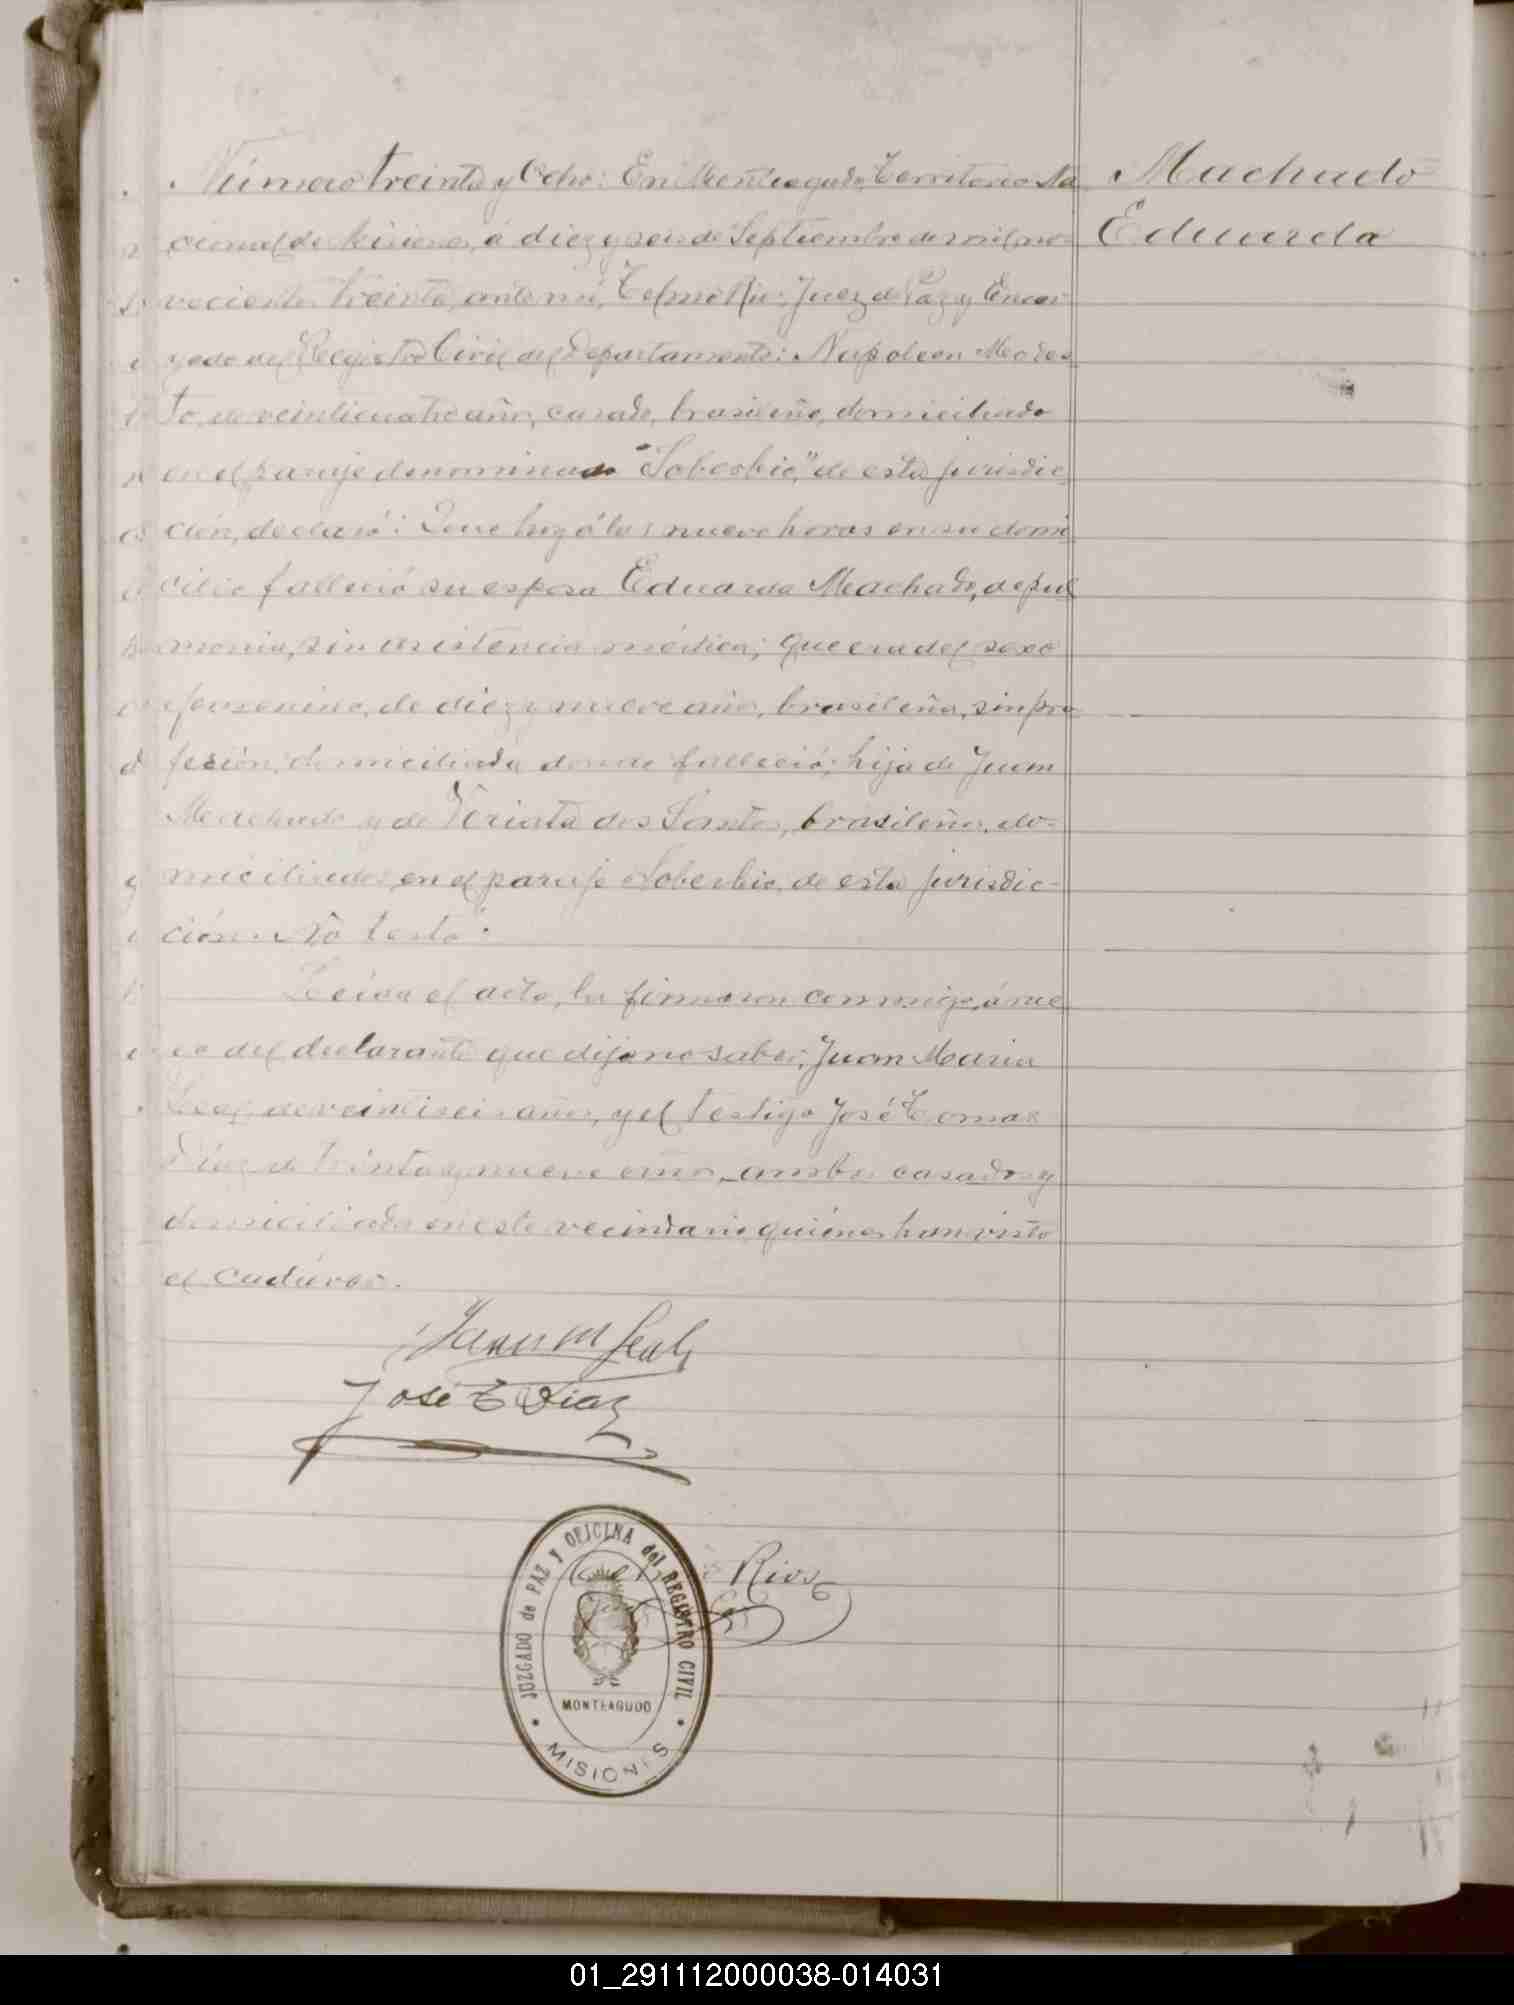 Número treinta y Ocho: En Monteagudo, Territorio Na
cional de Misiones, á diez y seis de Septiembre de mil no-
vecientos treinta, ante mí, Telmo Rios, Juez de Paz y Encar
gado del Registro Civil del Departamento: Napoleon Modes
to, de veinticuatro años, casado, brasileño, domiciliado
en el paraje denominado "Soberbio," de esta jurisdic
ción, declaró: Que hoy á las nueve horas en su domi
cilio falleció su esposa Eduarda Machado, de pul
monia, sin asistencia médica; que era del sexo
femenino, de diez y nueve años, brasileña, sin pro
fesión, domiciliada donde falleció; hija de Juan
Machado y de Viriata dos Santos, brasileños, do-
miciliados en el paraje Soberbio, de esta jurisdic-
ción. No testó.
Leída el acta, la firmaron conmigo, á rue
go del declarante que dijo no saber, Juan Maria
Leal, de veintiseis años, y el testigo José Tomas
Díaz, de treinta y nueve años, ambos casados y
domiciliados en este vecindario, quiénes han visto
el cadáver.
Machado
Eduarda
Juan M Leal
José T Diaz
Rios
JUZGADO de PAZ Y OFICINA del REGISTRO CIVIL
MONTEAGUDO
MISIONES
01_291112000038-014031